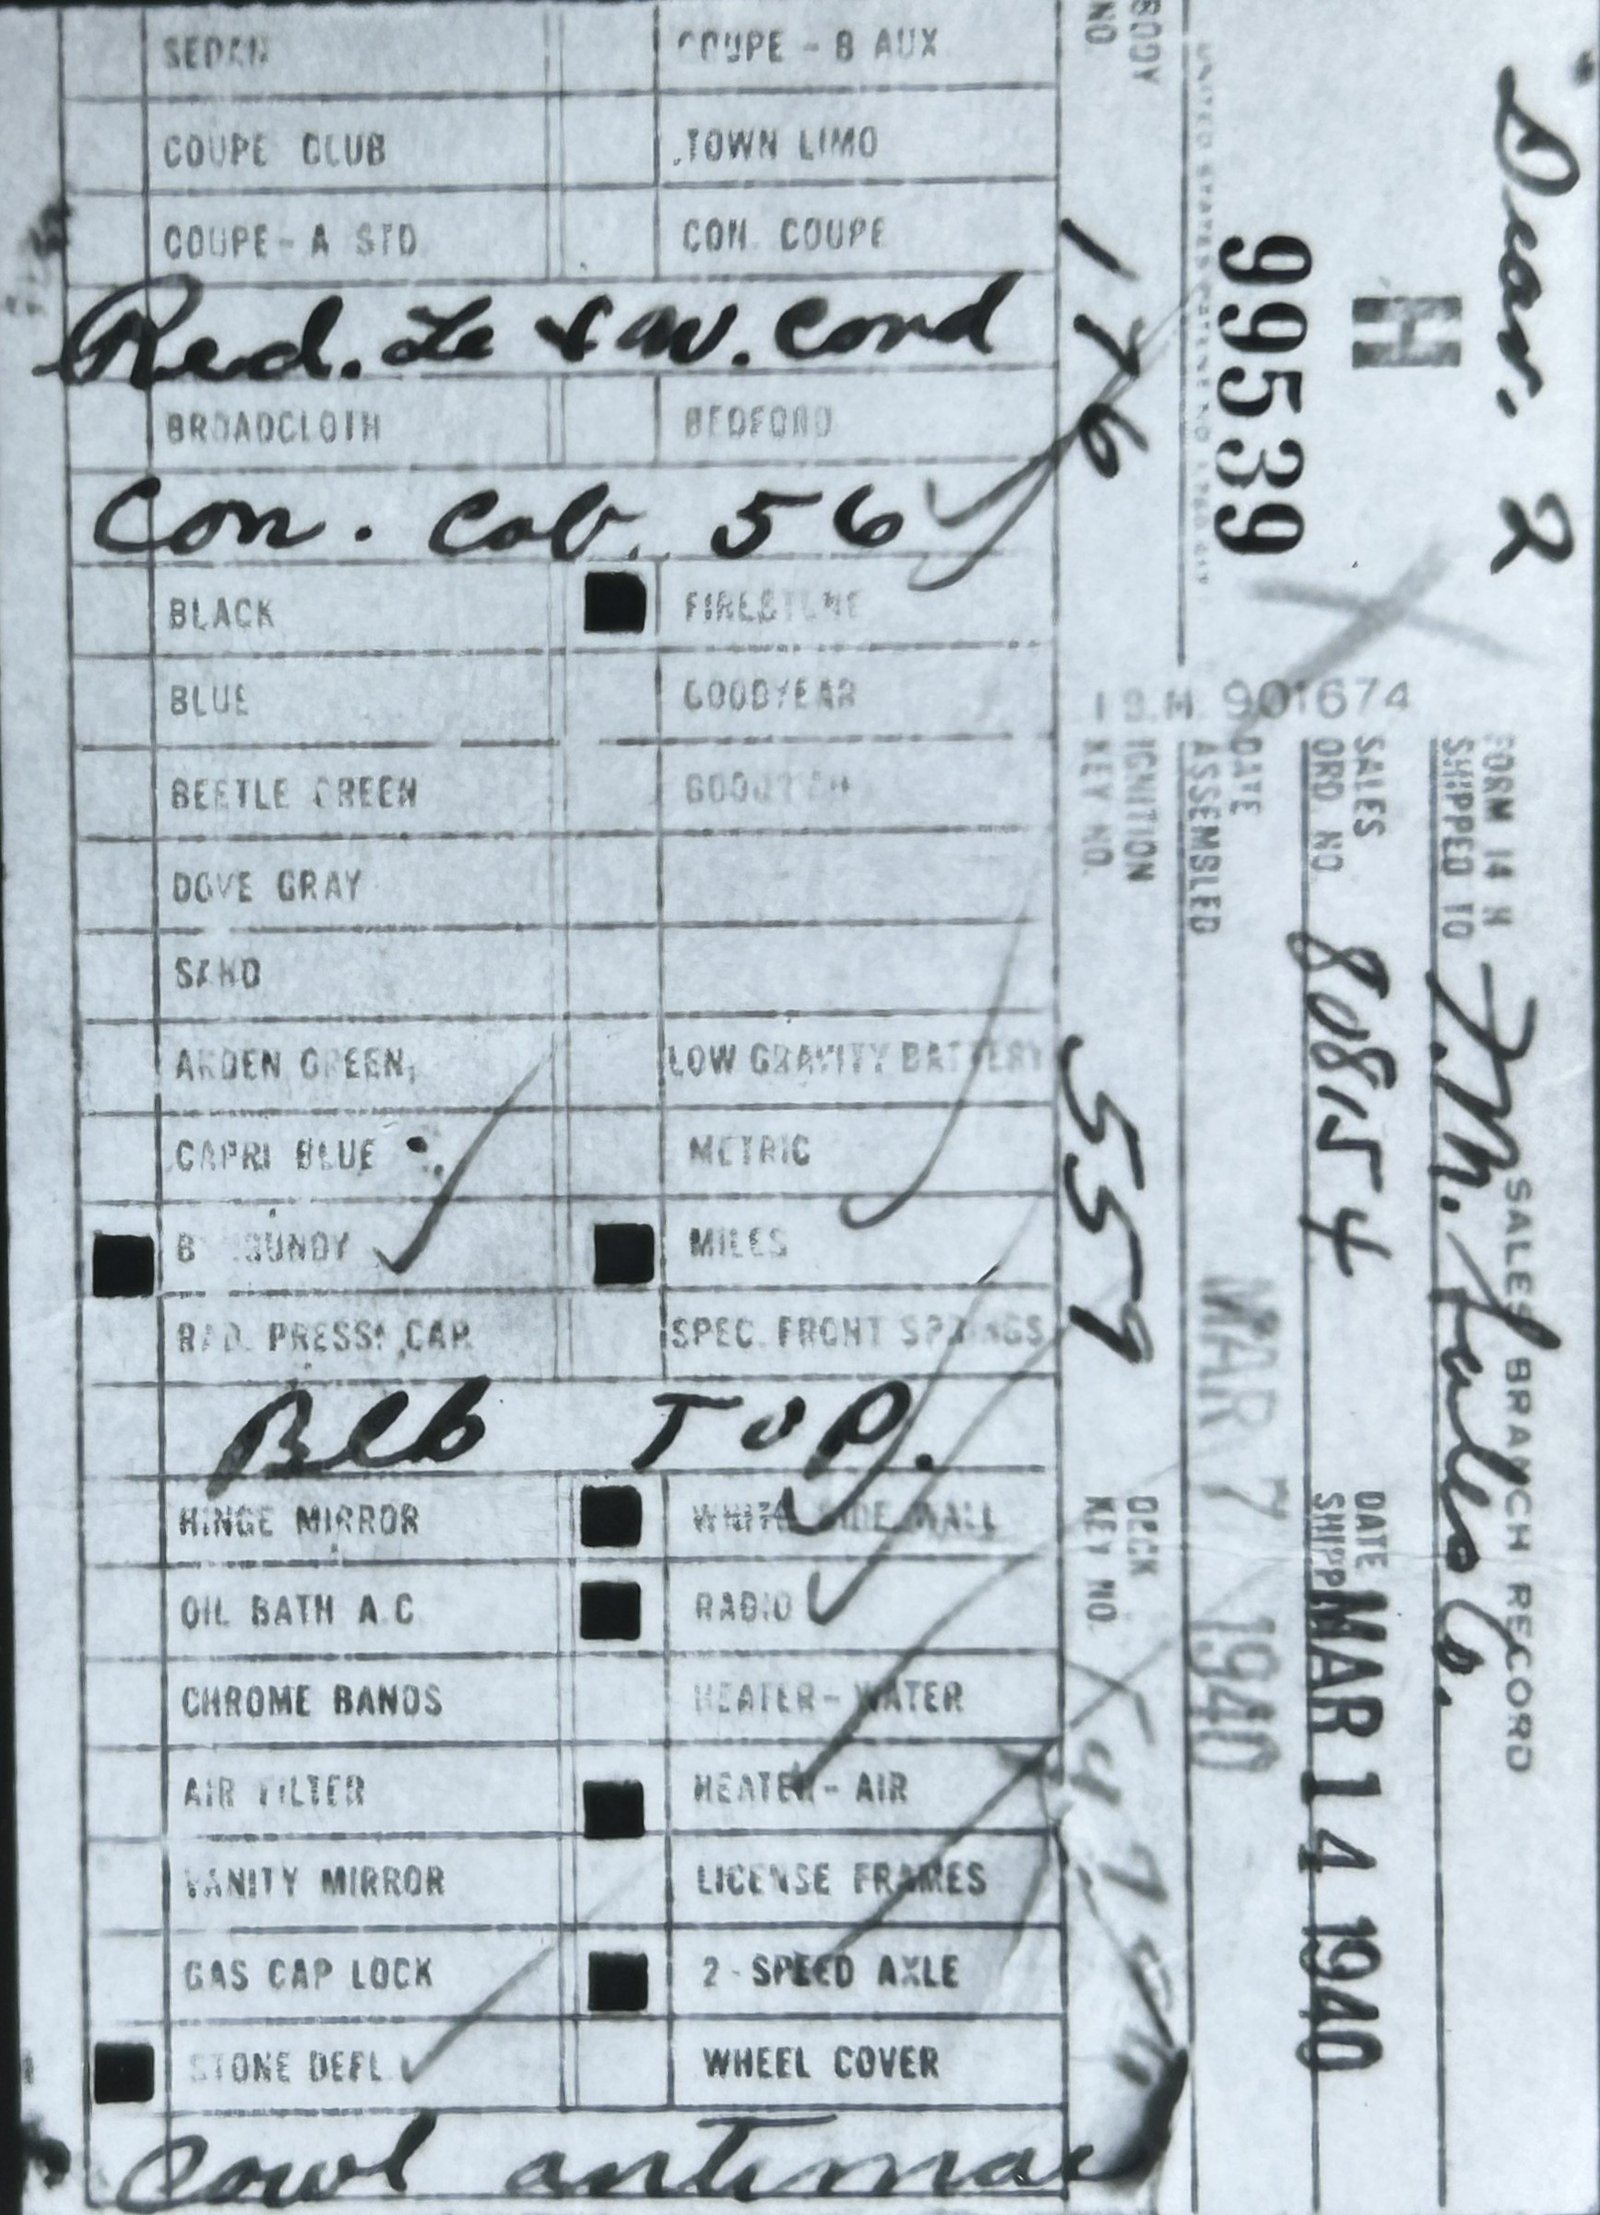 Dear. 2
FORM 14 H SALES BRANCH RECORD
SHIPPED TO F.M.
H
SALES ORD NO 80815 4
DATE SHIPP MAR 14 1940
99539
I B M 901674
DATE ASSEMBLED MAR 7 1940
BODY NO 176
IGNITION KEY NO. 559
DECK KEY NO.
SEDAN COUPE - B AUX
COUPE CLUB TOWN LIMO
COUPE - A STD CON. COUPE
Red. Le & W. Cord
BROADCLOTH BEDFORD
Con. Cob. 56
BLACK FIRESTONE
BLUE GOODYEAR
BEETLE GREEN
DOVE GRAY
SAND
ARDEN GREEN LOW GRAVITY BATTERY
CAPRI BLUE METRIC
BURGUNDY MILES
RAD. PRESS. CAP. SPEC. FRONT SPRINGS
Blk Top.
HINGE MIRROR WHITE SIDE WALL
OIL BATH A.C RADIO
CHROME BANDS HEATER - WATER
AIR FILTER HEATER - AIR
VANITY MIRROR LICENSE FRAMES
GAS CAP LOCK 2 - SPEED AXLE
STONE DEFL WHEEL COVER
Cowl antenna